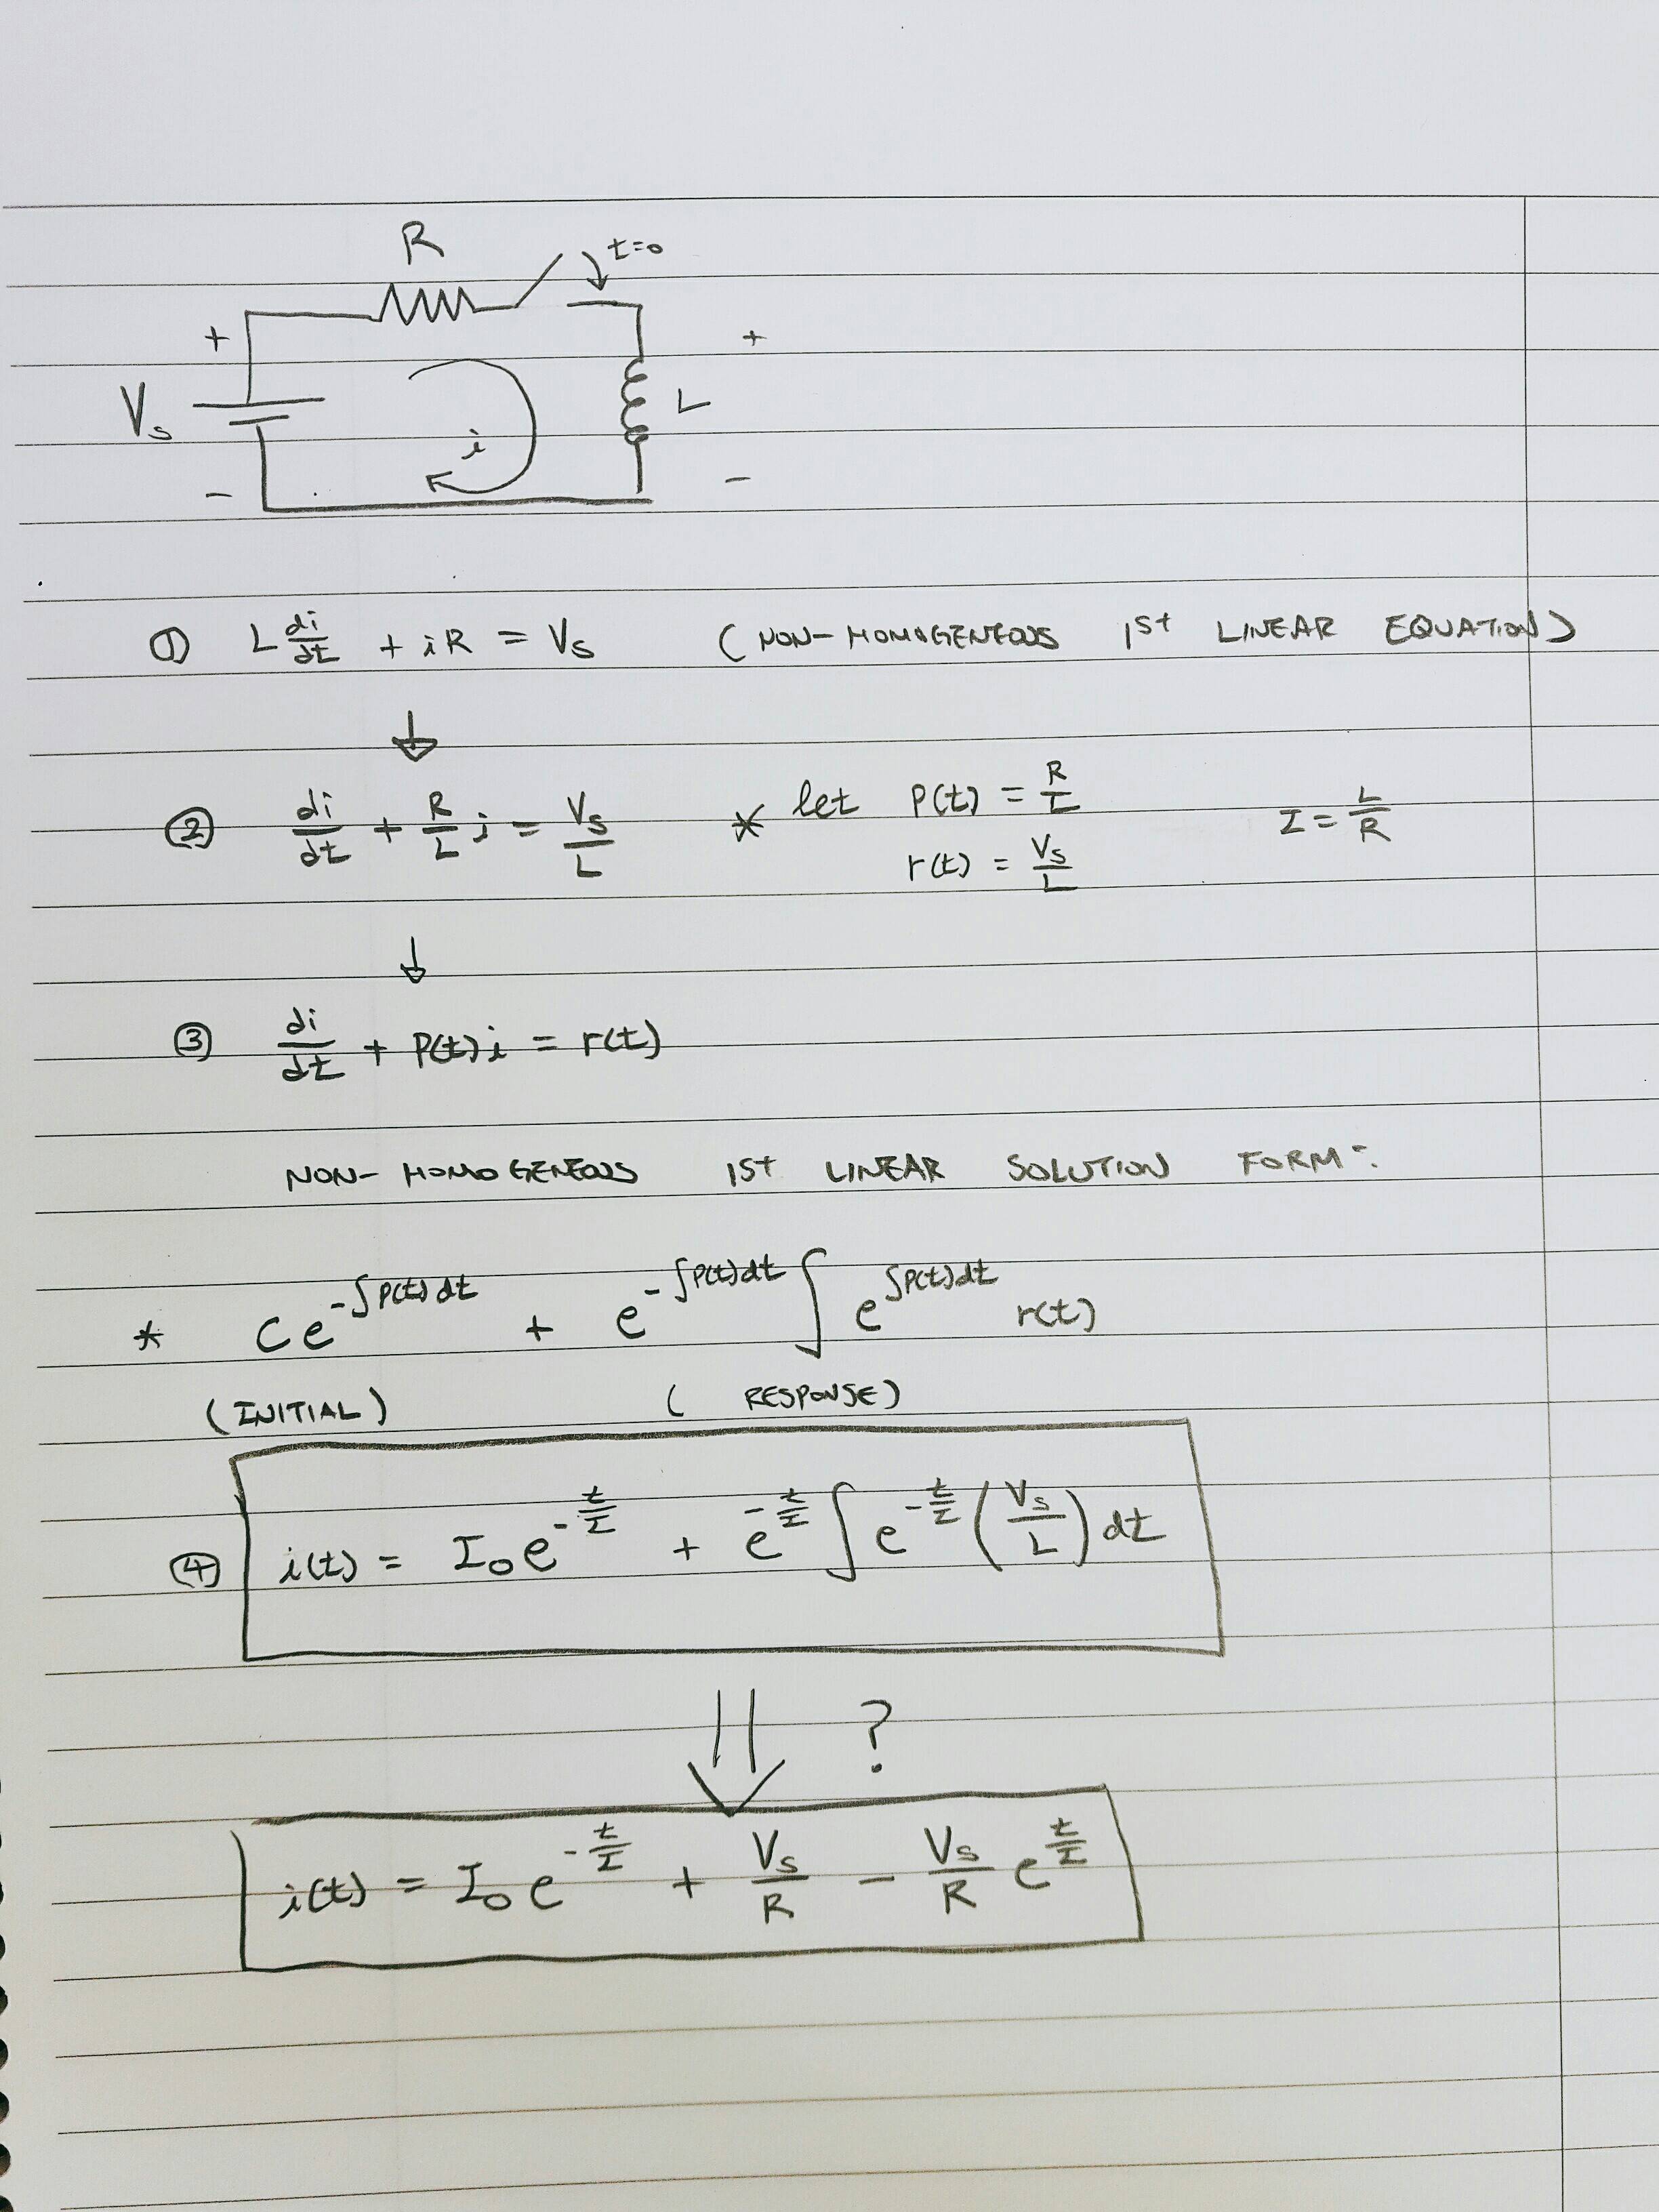 R t=0
+ +
Vs i L
- -
① L di/dt + iR = Vs (NON-HOMOGENEOUS 1ST LINEAR EQUATION)
② di/dt + R/L i = Vs/L * let P(t) = R/L I = L/R
r(t) = Vs/L
③ di/dt + P(t) i = r(t)
NON-HOMOGENEOUS 1ST LINEAR SOLUTION FORM:
* Ce^(-∫P(t)dt) + e^(-∫P(t)dt) ∫ e^(∫P(t)dt) r(t)
(INITIAL) ( RESPONSE)
④ i(t) = I₀e^(-t/I) + e^(-t/I) ∫ e^(-t/I) (Vs/L) dt
?
i(t) = I₀e^(-t/I) + Vs/R - Vs/R e^(t/I)